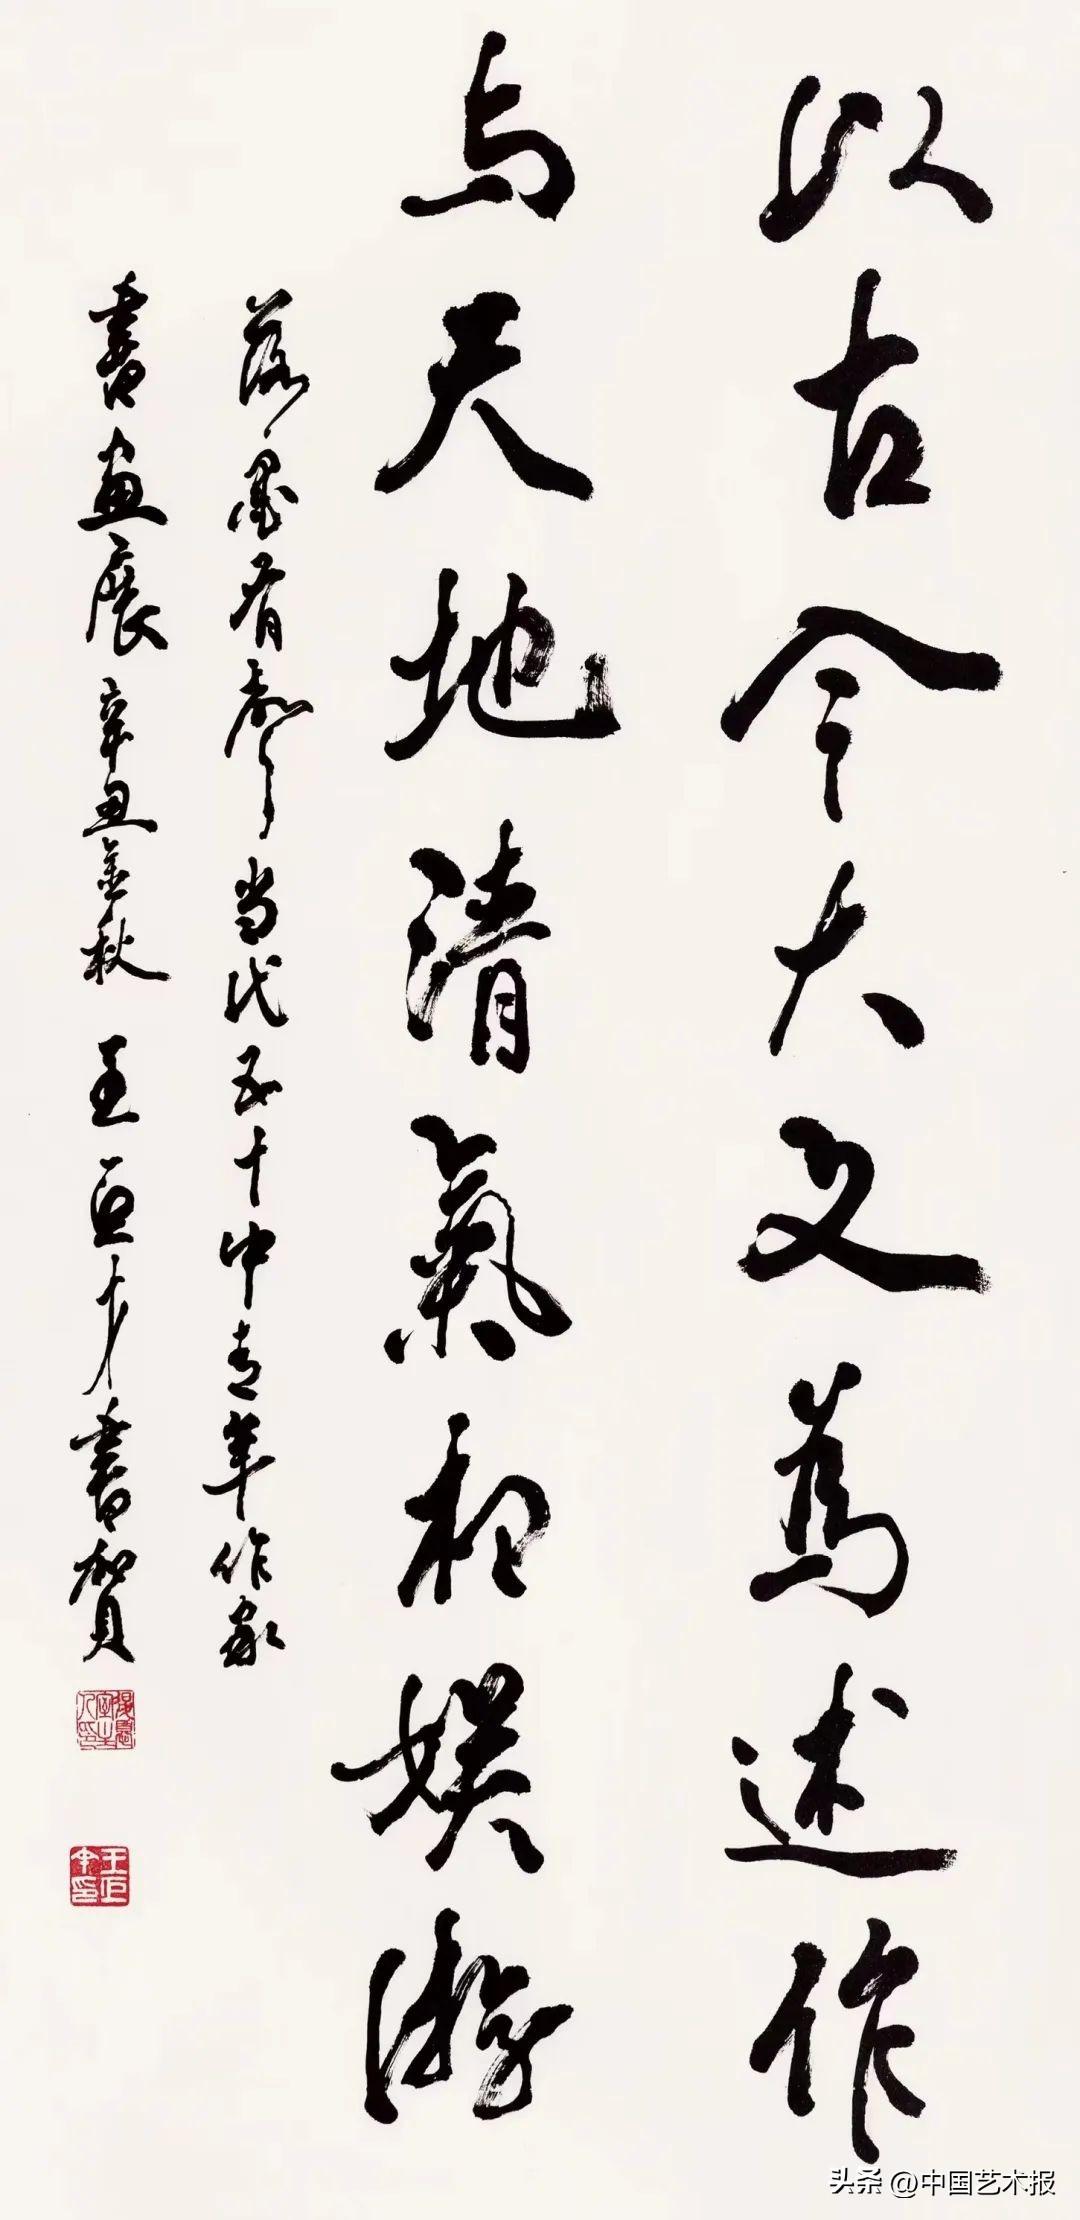 以古今大文為述作
与天地清氣相娱游
落墨有聲当代五十中青年作家
書畫展辛丑金秋王亚才書賀
头条@中国艺术报